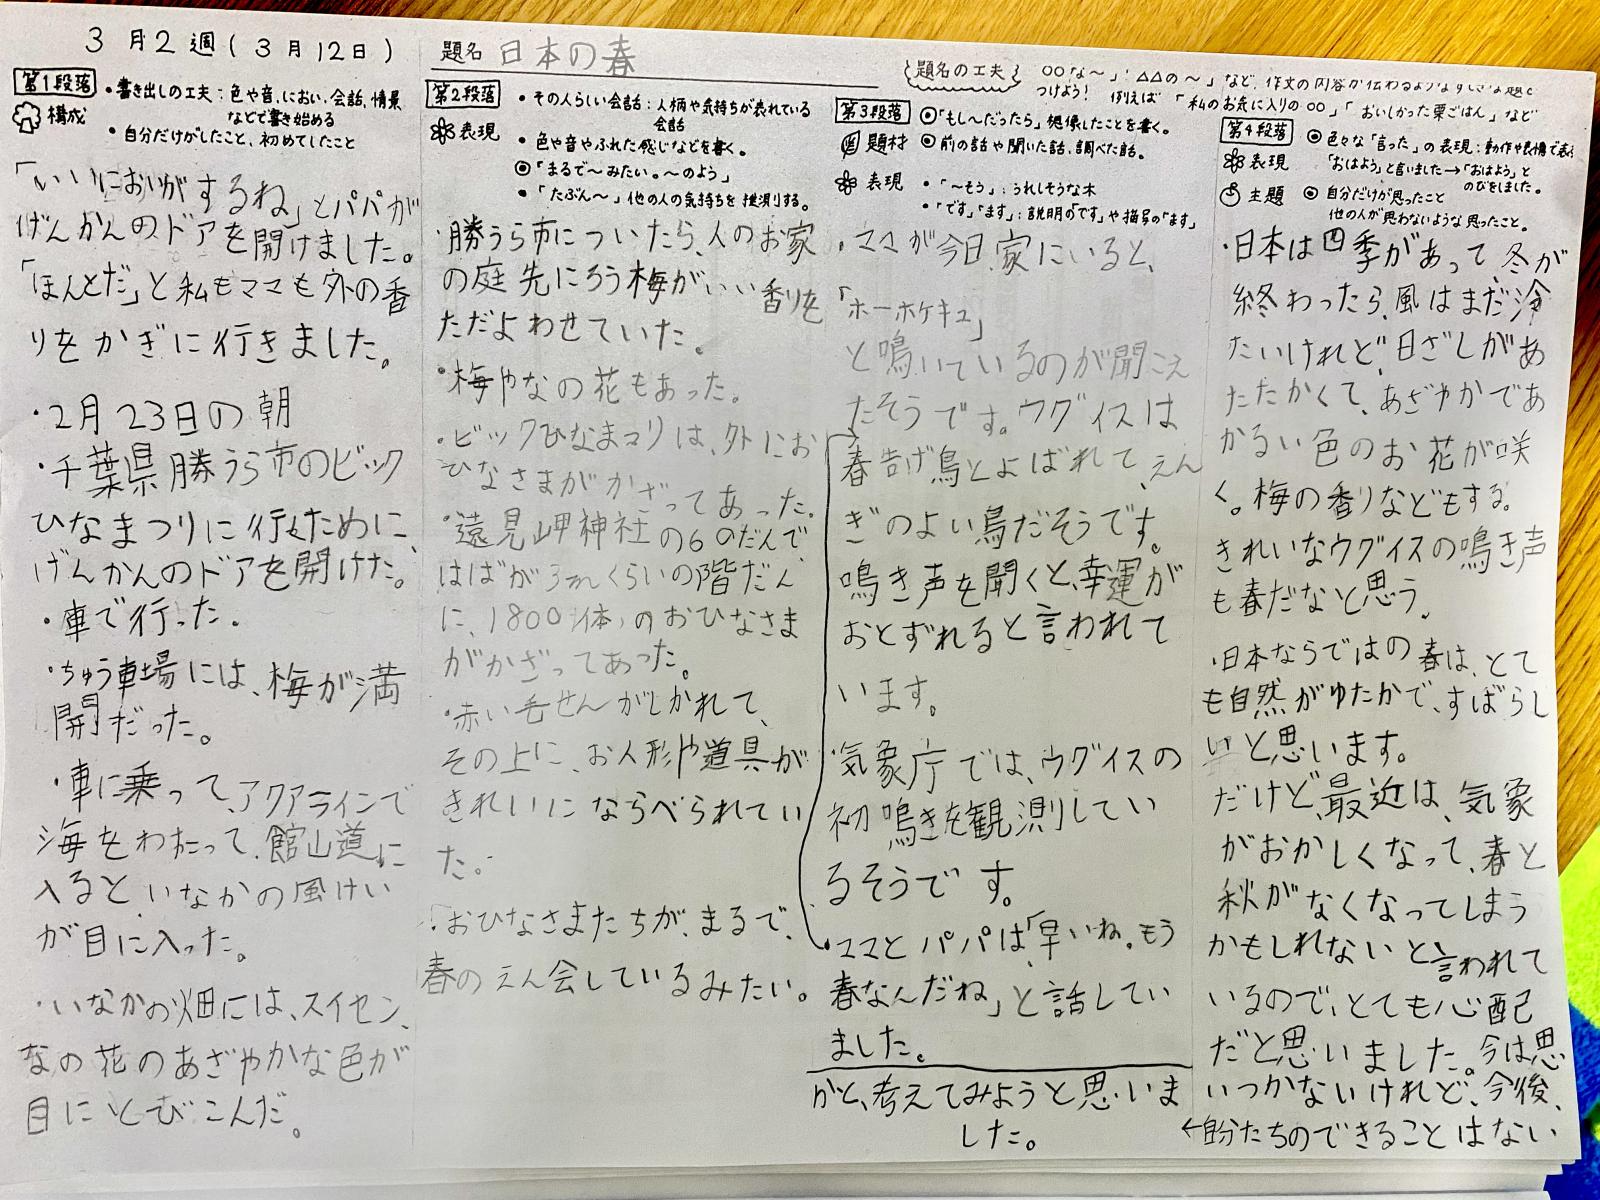 3月2週(3月12日)
題名 日本の春
題名の工夫 ○○な〜」「△△の〜」など、作文の内容が伝わるような
つけよう! 例えば「私のお気に入りの○○」「おいしかった栗ごはん」など
第1段落
構成
・書き出しの工夫:色や音、におい、会話、情景
などで書き始める
・自分だけがしたこと、初めてしたこと
「いいにおいがするね」とパパが
げんかんのドアを開けました。
「ほんとだ」と私もママも外の香
りをかぎに行きました。
・2月23日の朝
・千葉県勝うら市のビック
ひなまつりに行くために、
げんかんのドアを開けた。
・車で行った。
・ちゅう車場には、梅が満
開だった。
・車に乗って、アクアラインで
海をわたって、館山道に
入ると、いなかの風けい
が目に入った。
・いなかの畑には、スイセン、
なの花のあざやかな色が
目にとびこんだ。
第2段落
表現
・その人らしい会話:人柄や気持ちが表れている
会話
・色や音やふれた感じなどを書く。
◎「まるで〜みたい。〜のよう」
・「たぶん〜」他の人の気持ちを推測りする。
・勝うら市についたら、人のお家
の庭先にろう梅がいい香りを
ただよわせていた。
・梅やなの花もあった。
・ビックひなまつりは、外にお
ひなさまがかざってあった。
・遠見岬神社の60だんで、
はばが
くらいの階だん
に、1800体のおひなさま
がかざってあった。
・赤い毛せんがしかれて、
その上に、お人形や道具が
きれいにならべられてい
た。
「おひなさまたちが、まるで、
春のえん会しているみたい。
第3段落
題材
表現
◎「もし〜だったら」想像したことを書く。
◎前の話や聞いた話、調べた話。
・「〜そう」:うれしそうな木
・「です」「ます」:説明の「です」や描写の「ます」
・ママが今日、家にいると、
「ホーホケキュ」
と鳴いているのが聞こえ
たそうです。ウグイスは
春告げ鳥とよばれて、えん
ぎのよい鳥だそうです。
鳴き声を聞くと、幸運が
おとずれると言われて
います。
・気象庁では、ウグイスの
初鳴きを観測してい
るそうです。
・ママとパパは「早いね。もう
春なんだね」と話してい
ました。
第4段落
表現
主題
◎色々な「言った」の表現:動作や表情で表
「おはよう」と言いました→「おはよう」と
のびをしました。
◎自分だけが思ったこと
他の人が思わないような思ったこと。
・日本は四季があって、冬が
終わったら、風はまだ冷
たいけれど、日ざしがあ
たたかくて、あざやかであ
かるい色のお花が咲
く。梅の香りなどもする。
きれいなウグイスの鳴き声
も春だなと思う。
・日本ならではの春は、とて
も自然がゆたかで、すばらし
いと思います。
だけど、最近は、気象
がおかしくなって、春と
秋がなくなってしまう
かもしれないと言われて
いるので、とても心配
だと思いました。今は思
いつかないけれど、今後、
←自分たちのできることはない
かと、考えてみようと思いま
した。